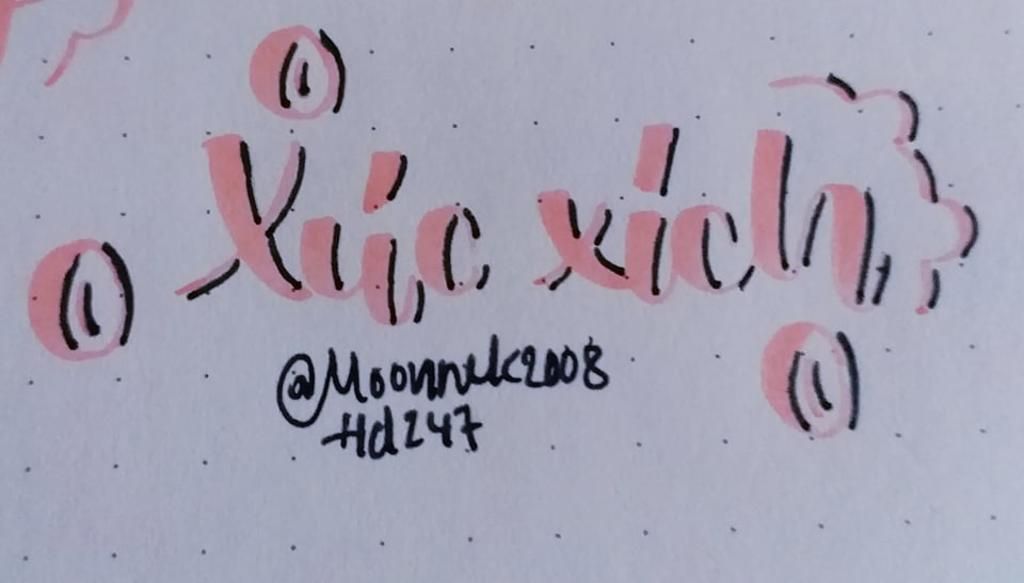 Xúc xích
@Moonnulc2008
Hd247